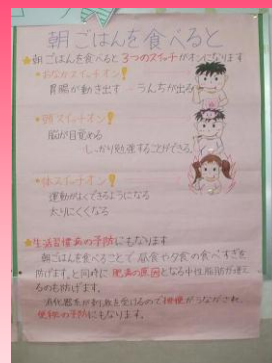 朝ごはんを食べると
★朝ごはんを食べると3つのスイッチがオンになります
★おなかスイッチオン!
胃腸が動き出す うんちが出る
★頭スイッチオン!
脳が目覚める
しっかり勉強することができる
★体スイッチオン!
運動がよくできるようになる
太りにくくなる
★生活習慣病の予防にもなります
朝ごはんを食べることで昼食や夕食の食べすぎを
防げます。と同時に肥満の原因となる中性脂肪が増え
るのも防げます。
消化器官が刺激を受けるので排便がうながされ
便秘の予防にもなります。